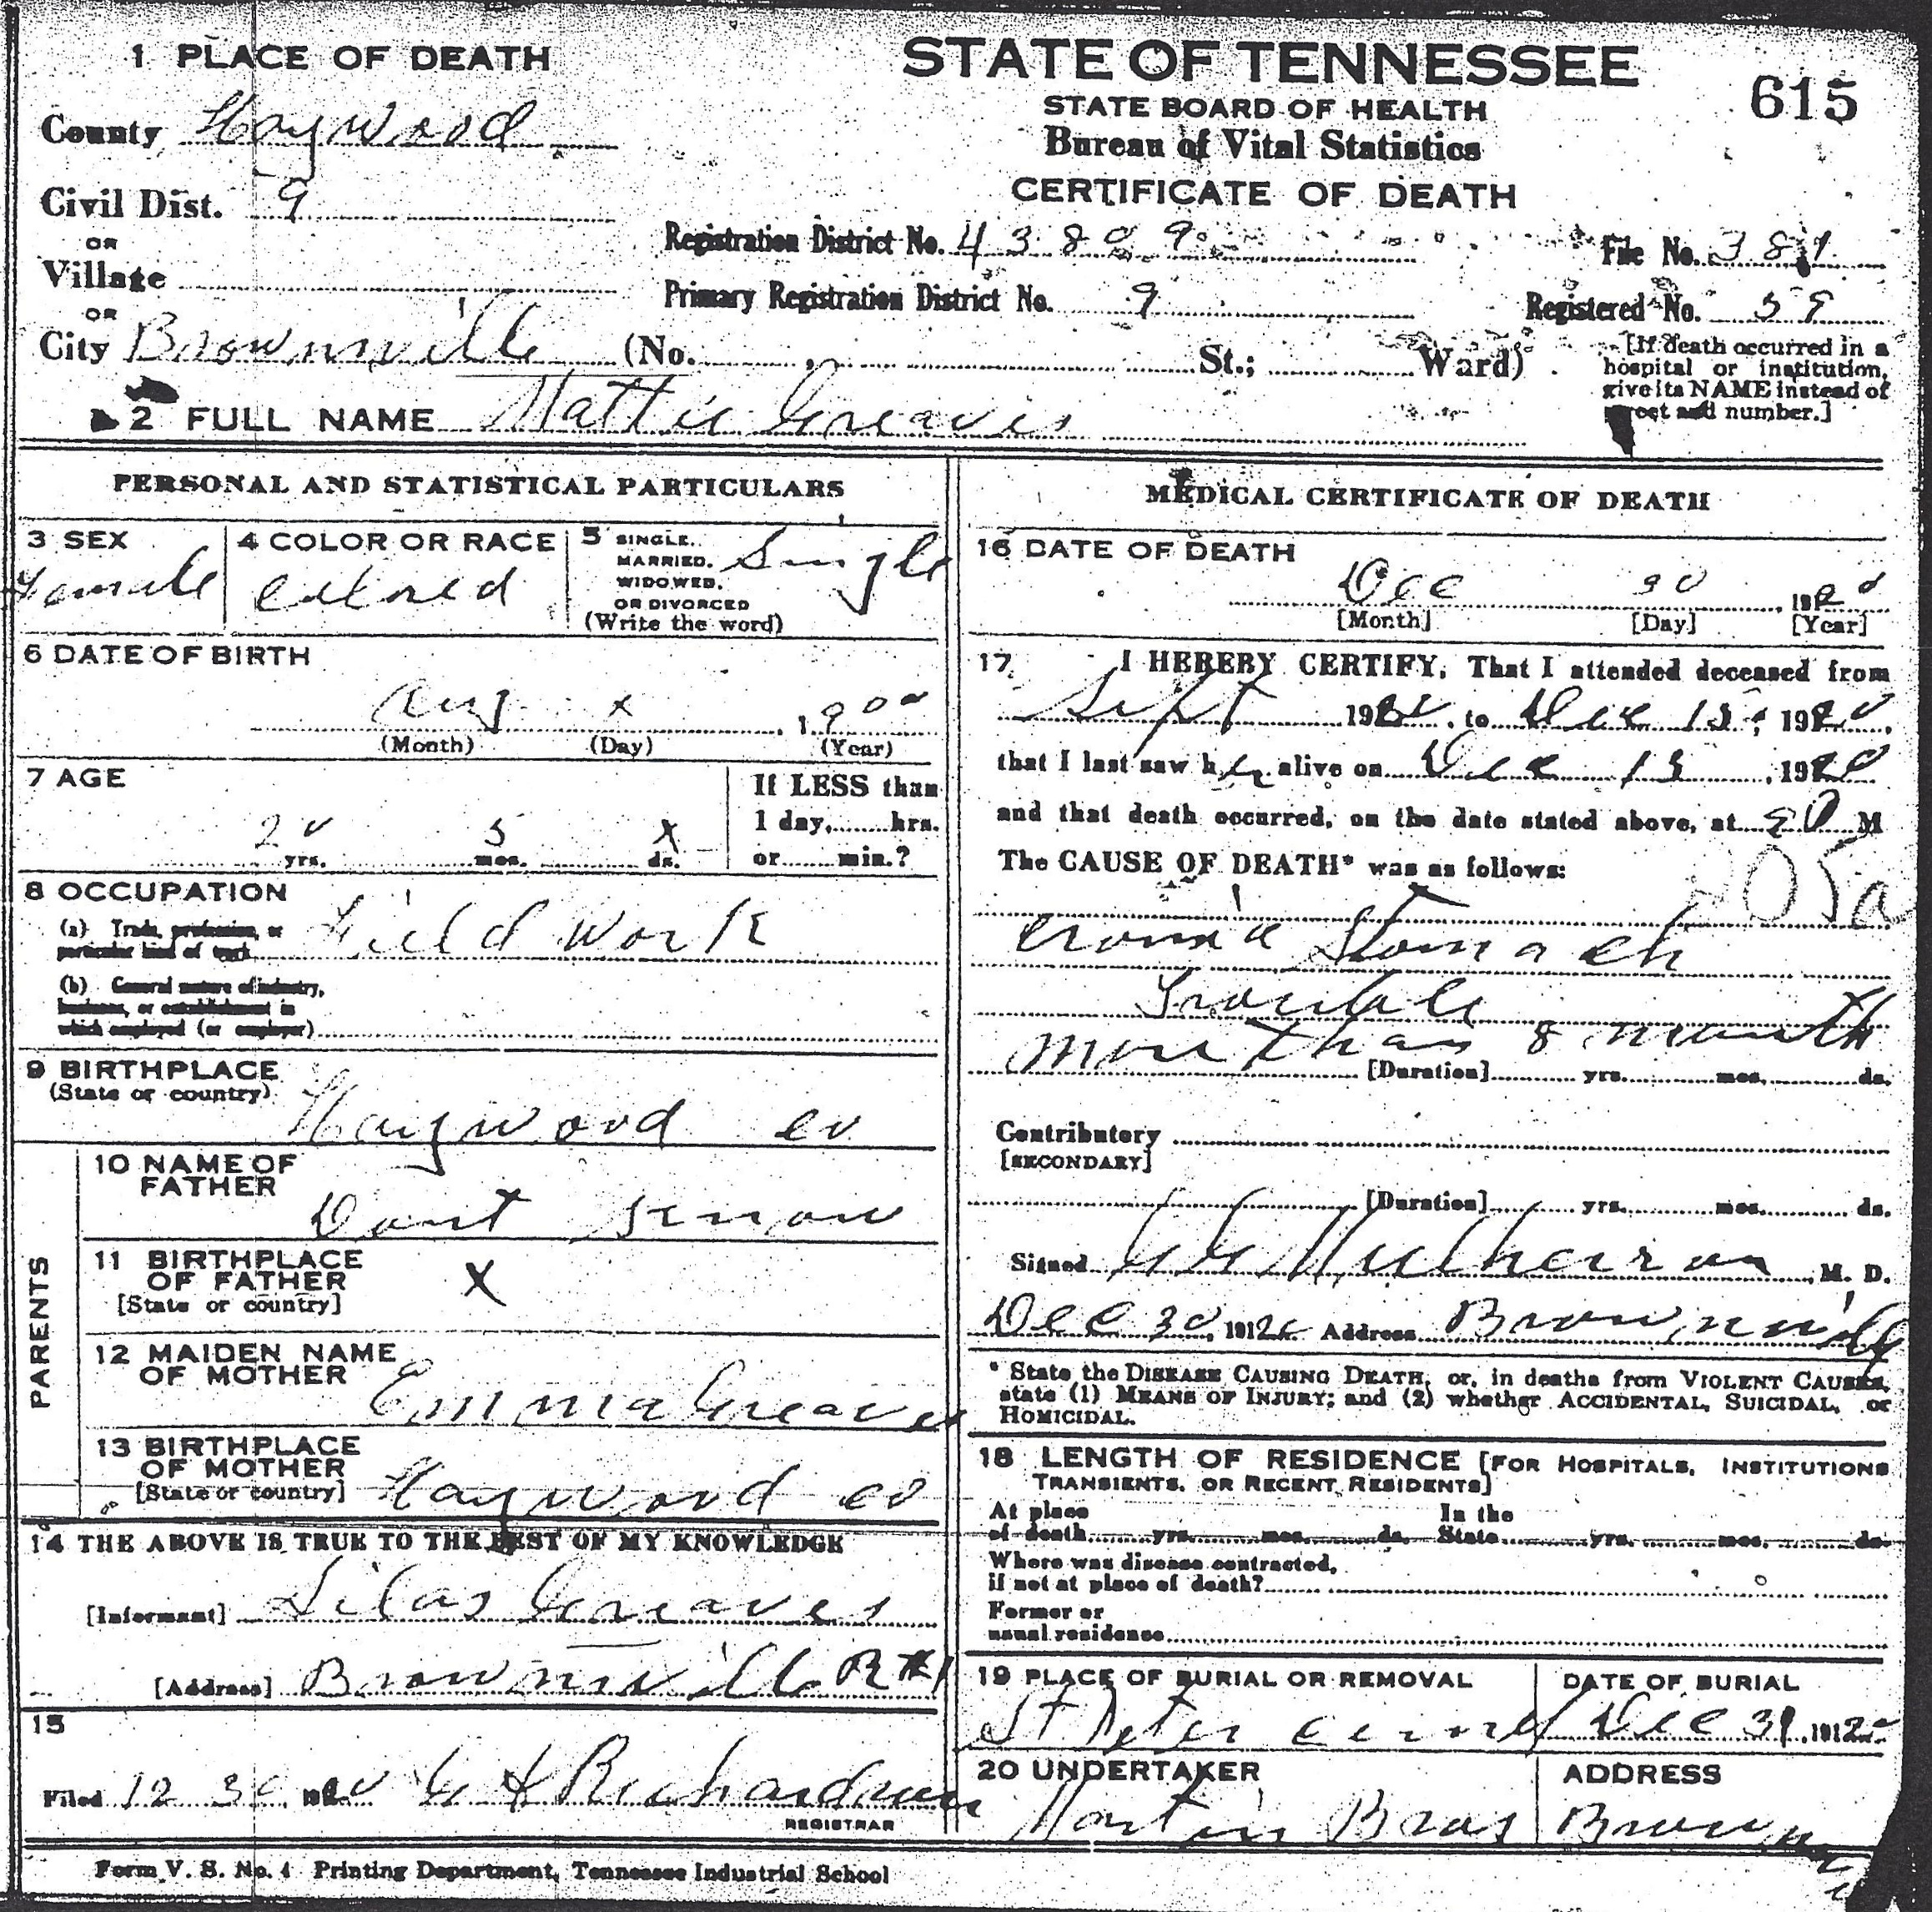 1 PLACE OF DEATH
STATE OF TENNESSEE
STATE BOARD OF HEALTH
Bureau of Vital Statistics
CERTIFICATE OF DEATH
615
County Haywood
Civil Dist. 9
OR
Village
OR
City Brownsville (No. , St.; Ward)
Registration District No. 43809
File No. 381
Primary Registration District No. 9
Registered No. 59
[If death occurred in a
hospital or institution,
give its NAME instead of
street and number.]
2 FULL NAME Mattie Greaves
PERSONAL AND STATISTICAL PARTICULARS
3 SEX
Female
4 COLOR OR RACE
colored
5 SINGLE, MARRIED, WIDOWED, OR DIVORCED
(Write the word)
Single
6 DATE OF BIRTH
Aug x , 1900
(Month) (Day) (Year)
7 AGE
20 yrs. 5 mos. X ds.
If LESS than
1 day, hrs.
or min.?
8 OCCUPATION
(a) Trade, profession, or
particular kind of work Field Work
(b) General nature of industry,
business, or establishment in
which employed (or employer)
9 BIRTHPLACE
(State or country)
Haywood co
PARENTS
10 NAME OF
FATHER
Dont know
11 BIRTHPLACE
OF FATHER
[State or country]
X
12 MAIDEN NAME
OF MOTHER
Emma Greaves
13 BIRTHPLACE
OF MOTHER
[State or country] Haywood co
14 THE ABOVE IS TRUE TO THE BEST OF MY KNOWLEDGE
[Informant] Silas Greaves
[Address] Brownsville R#1
15
Filed 12 30 1920 Richardson
REGISTRAR
MEDICAL CERTIFICATE OF DEATH
16 DATE OF DEATH
Dec 30 , 1920
[Month] [Day] [Year]
17 I HEREBY CERTIFY, That I attended deceased from
Sept 1920, to Dec 15, 1920,
that I last saw her alive on Dec 15, 1920
and that death occurred, on the date stated above, at M
The CAUSE OF DEATH* was as follows:
cronic Stomach
Trouble
more than 8 month
[Duration] yrs. mos. ds.
Contributory
[SECONDARY]
[Duration] yrs. mos. ds.
Signed Mulherron, M. D.
Dec 30, 1920 Address Brownsville
* State the DISEASE CAUSING DEATH, or, in deaths from VIOLENT CAUSES,
state (1) MEANS OF INJURY; and (2) whether ACCIDENTAL, SUICIDAL, or
HOMICIDAL.
18 LENGTH OF RESIDENCE [FOR HOSPITALS, INSTITUTIONS
TRANSIENTS, OR RECENT RESIDENTS]
At place
of death yrs. mos. ds.
In the
State yrs. mos. ds.
Where was disease contracted,
if not at place of death?
Former or
usual residence
19 PLACE OF BURIAL OR REMOVAL
St Peter
DATE OF BURIAL
Dec 31, 1920
20 UNDERTAKER
Martin Bros
ADDRESS
Form V. S. No. 4 Printing Department, Tennessee Industrial School